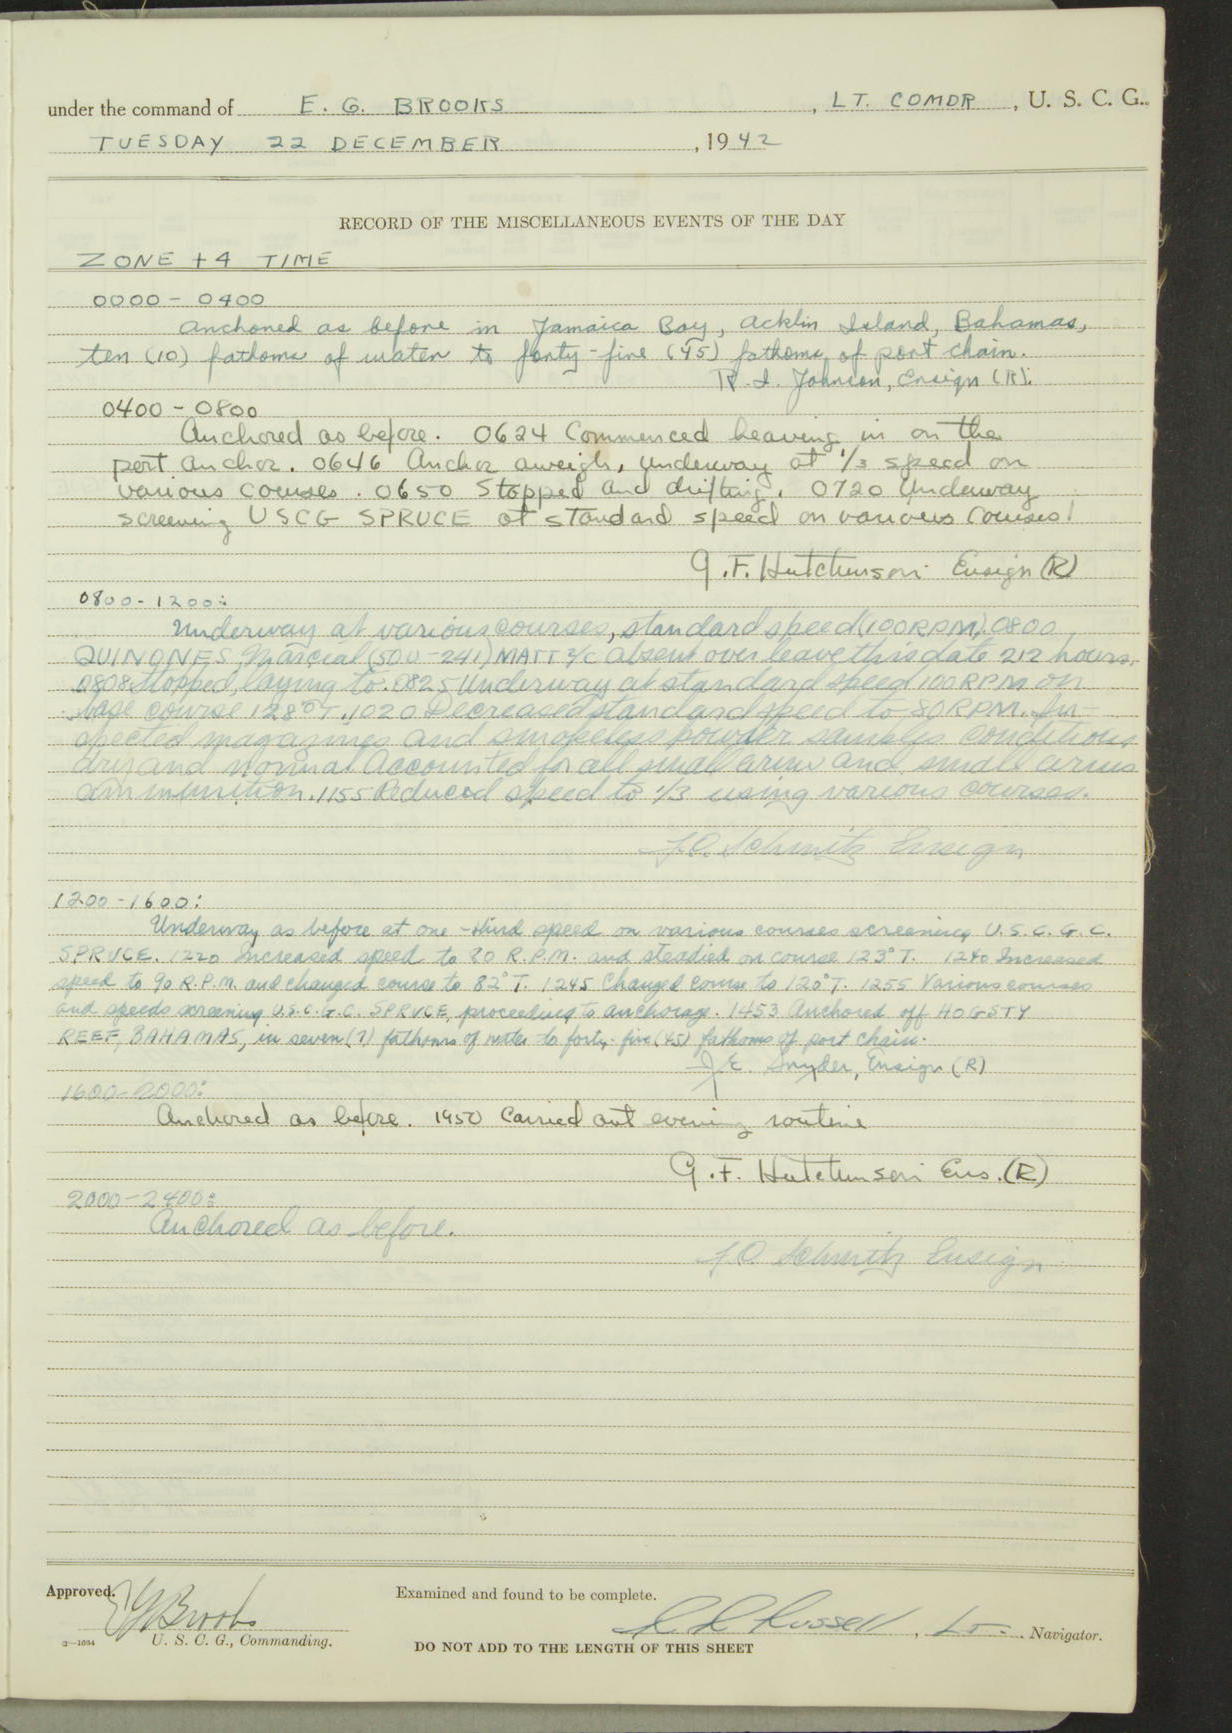 under the command of E. G. BROOKS , LT. COMDR , U. S. C. G..
TUESDAY 22 DECEMBER , 1942
RECORD OF THE MISCELLANEOUS EVENTS OF THE DAY
ZONE +4 TIME
0000 - 0400
Anchored as before in Jamaica Bay, Acklin Island, Bahamas,
ten (10) fathoms of water to forty-five (45) fathoms of port chain.
R. I. Johnson, Ensign (R).
0400 - 0800
Anchored as before. 0624 Commenced heaving in on the
port anchor. 0646 Anchor aweigh, underway at 1/3 speed on
various courses. 0650 Stopped and drifting. 0720 Underway
screening USCG SPRUCE at standard speed on various courses.
G. F. Hutchinson Ensign (R)
0800 - 1200:
Underway at various courses, standard speed (100 RPM). 0800
QUINONES, Marcial (500-241) MATT 2/c absent over leave this date 212 hours.
0808 Stopped, laying to. 0825 Underway at standard speed 100 RPM on
base course 128° T. 1020 Decreased standard speed to 80 RPM. In-
spected magazines and smokeless powder samples conditions
dry and normal. Accounted for all small arms and small arms
ammunition. 1155 Reduced speed to 1/3 using various courses.
Schmitz Ensign
1200 - 1600:
Underway as before at one-third speed on various courses screening U. S. C. G. C.
SPRUCE. 1220 Increased speed to 80 R.P.M. and steadied on course 123° T. 1240 Increased
speed to 90 R.P.M. and changed course to 82° T. 1245 Changed course to 120° T. 1255 Various courses
and speeds screening U.S.C.G.C. SPRUCE, proceeding to anchorage. 1453 Anchored off HOGSTY
REEF, BAHAMAS, in seven (7) fathoms of water to forty-five (45) fathoms of port chain.
J. E. Snyder, Ensign (R)
1600-2000:
Anchored as before. 1950 Carried out evening routine
G. F. Hutchinson Ens. (R)
2000-2400:
Anchored as before.
Schmitz Ensign
Approved. EGBrooks Examined and found to be complete.
Russell, Lt. Navigator.
U. S. C. G., Commanding.
DO NOT ADD TO THE LENGTH OF THIS SHEET